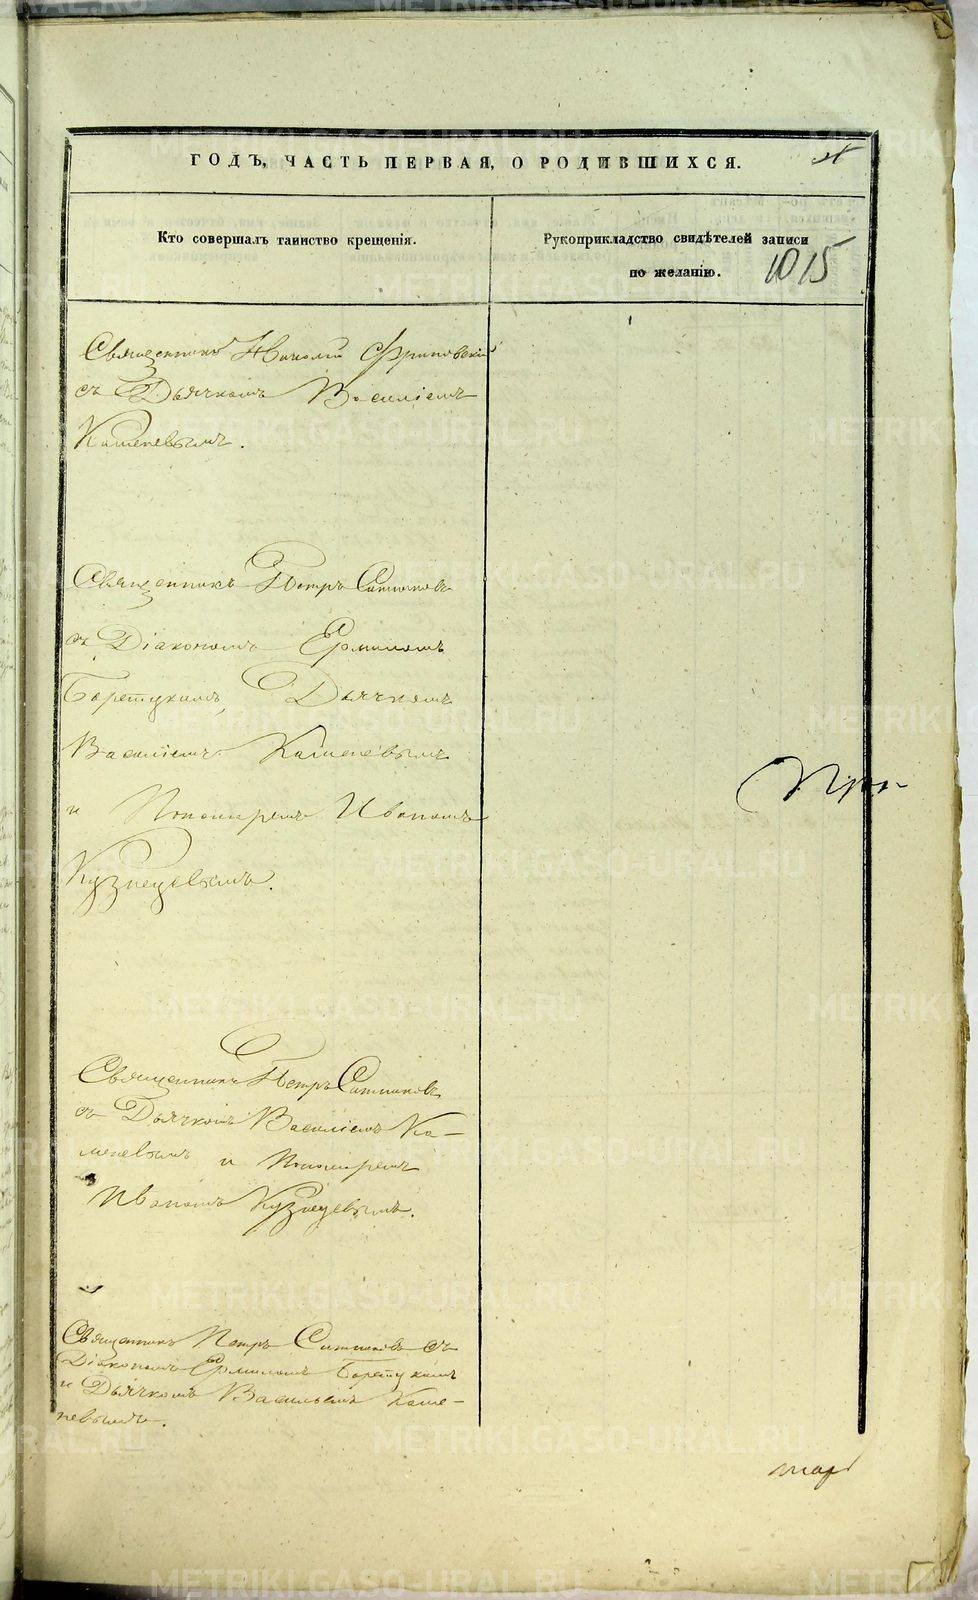 ГОДЪ, ЧАСТЬ ПЕРВАЯ, О РОДИВШИХСЯ.
Кто совершалъ таинство крещенія.
Рукоприкладство свидѣтелей записи
по желанію.
1015
Священникъ Николай
съ Дьячкомъ Василіемъ
Каменевымъ.
Священникъ Петръ Ситниковъ
съ Діакономъ Ермиломъ
Дьячкомъ
Василіемъ Каменевымъ
и Пономаремъ Иваномъ
Кузнецевымъ.
Священникъ Петръ Ситниковъ
съ Дьячкомъ Василіемъ Ка-
меневымъ и Пономаремъ
Иваномъ Кузнецевымъ.
Священникъ Петръ Ситниковъ съ
Діакономъ Ермиломъ
и Дьячкомъ Васильемъ Каме-
невымъ.
METRIKI.GASO-URAL.RU